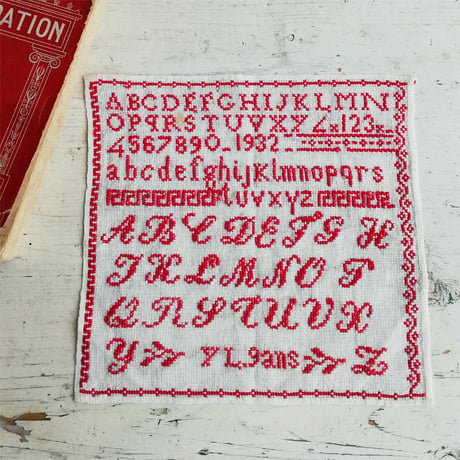 ATION
ABCDEFGHIJKLMN
OPQRSTUVXYZ 123
4567890_1932_
abcdefghijklmnopqrs
tuvxyz
A B C D E F G H
I K L M N O P
Q R S T U V X
Y YL.9ans Z